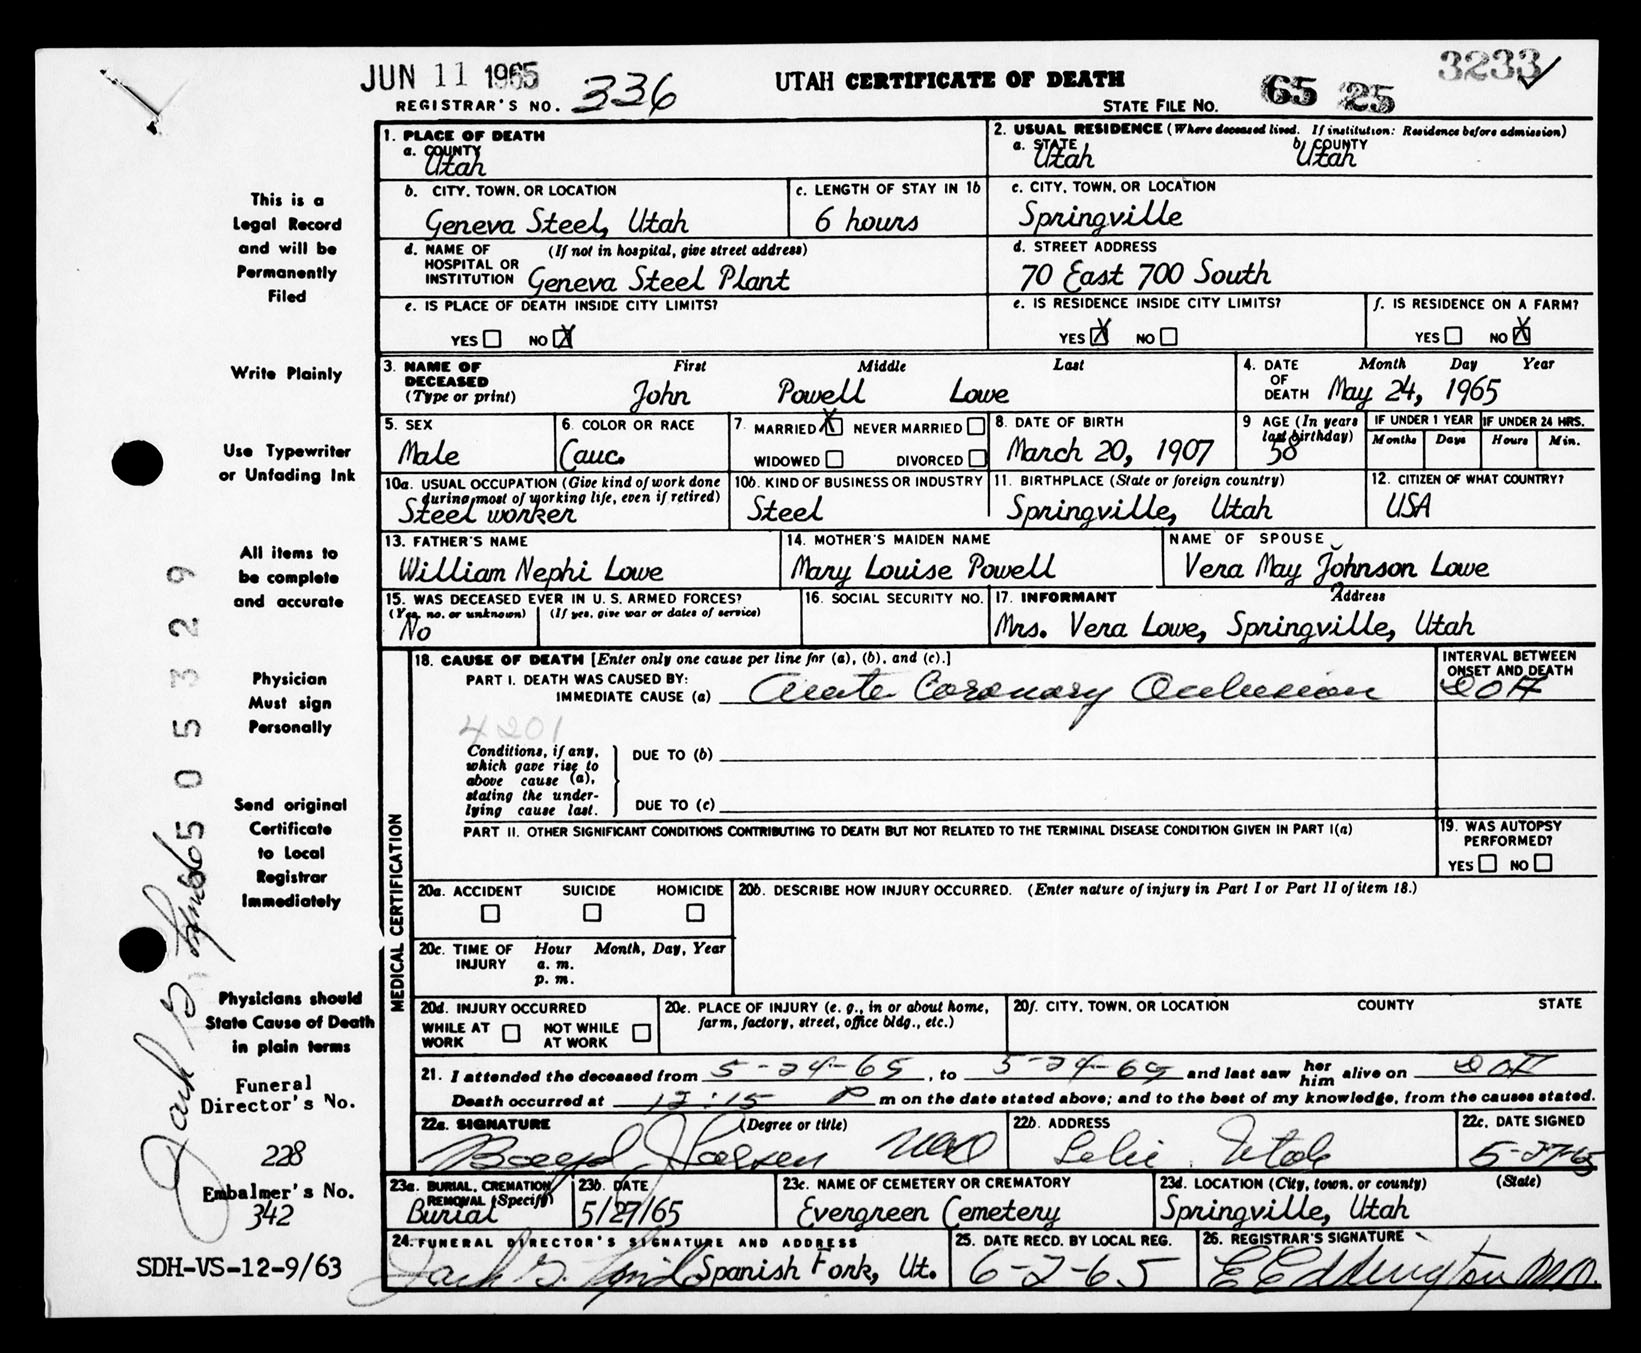 JUN 11 1965
REGISTRAR'S NO. 336
UTAH CERTIFICATE OF DEATH
3233
STATE FILE NO. 65 25
This is a
Legal Record
and will be
Permanently
Filed
Write Plainly
Use Typewriter
or Unfading Ink
All items to
be complete
and accurate
Physician
Must sign
Personally
Send original
Certificate
to Local
Registrar
Immediately
Physicians should
State Cause of Death
in plain terms
Funeral
Director's No.
228
Embalmer's No.
342
SDH-VS-12-9/63
65 05329
1. PLACE OF DEATH
a. COUNTY
Utah
2. USUAL RESIDENCE (Where deceased lived. If institution: Residence before admission)
a. STATE b. COUNTY
Utah Utah
b. CITY, TOWN, OR LOCATION
Geneva Steel, Utah
c. LENGTH OF STAY IN 1b
6 hours
c. CITY, TOWN, OR LOCATION
Springville
d. NAME OF (If not in hospital, give street address)
HOSPITAL OR
INSTITUTION Geneva Steel Plant
d. STREET ADDRESS
70 East 700 South
e. IS PLACE OF DEATH INSIDE CITY LIMITS?
YES NO X
e. IS RESIDENCE INSIDE CITY LIMITS?
YES X NO
f. IS RESIDENCE ON A FARM?
YES NO X
3. NAME OF First Middle Last
DECEASED
(Type or print) John Powell Lowe
4. DATE Month Day Year
OF
DEATH May 24, 1965
5. SEX
Male
6. COLOR OR RACE
Cauc.
7. MARRIED X NEVER MARRIED
WIDOWED DIVORCED
8. DATE OF BIRTH
March 20, 1907
9 AGE (In years
last birthday)
58
IF UNDER 1 YEAR
Months Days
IF UNDER 24 HRS.
Hours Min.
10a. USUAL OCCUPATION (Give kind of work done
during most of working life, even if retired)
Steel worker
10b. KIND OF BUSINESS OR INDUSTRY
Steel
11. BIRTHPLACE (State or foreign country)
Springville, Utah
12. CITIZEN OF WHAT COUNTRY?
USA
13. FATHER'S NAME
William Nephi Lowe
14. MOTHER'S MAIDEN NAME
Mary Louise Powell
NAME OF SPOUSE
Vera May Johnson Lowe
15. WAS DECEASED EVER IN U. S. ARMED FORCES?
(Yes, no, or unknown) (If yes, give war or dates of service)
No
16. SOCIAL SECURITY NO.
17. INFORMANT Address
Mrs. Vera Lowe, Springville, Utah
MEDICAL CERTIFICATION
18. CAUSE OF DEATH [Enter only one cause per line for (a), (b), and (c).]
PART I. DEATH WAS CAUSED BY:
IMMEDIATE CAUSE (a) Acute Coronary Occlusion
INTERVAL BETWEEN
ONSET AND DEATH
DOA
4201
Conditions, if any,
which gave rise to
above cause (a),
stating the under-
lying cause last.
DUE TO (b)
DUE TO (c)
PART II. OTHER SIGNIFICANT CONDITIONS CONTRIBUTING TO DEATH BUT NOT RELATED TO THE TERMINAL DISEASE CONDITION GIVEN IN PART I(a)
19. WAS AUTOPSY
PERFORMED?
YES NO
20a. ACCIDENT SUICIDE HOMICIDE
20b. DESCRIBE HOW INJURY OCCURRED. (Enter nature of injury in Part I or Part II of item 18.)
20c. TIME OF Hour Month, Day, Year
INJURY a. m.
p. m.
20d. INJURY OCCURRED
WHILE AT WORK NOT WHILE AT WORK
20e. PLACE OF INJURY (e. g., in or about home,
farm, factory, street, office bldg., etc.)
20f. CITY, TOWN, OR LOCATION COUNTY STATE
21. I attended the deceased from 5-24-65, to 5-24-65 and last saw her him alive on DOA
Death occurred at 12:15 P m on the date stated above; and to the best of my knowledge, from the causes stated.
22a. SIGNATURE (Degree or title)
Boyd J Larsen MD
22b. ADDRESS
Lehi Utah
22c. DATE SIGNED
5-27-65
23a. BURIAL, CREMATION,
REMOVAL (Specify)
Burial
23b. DATE
5/27/65
23c. NAME OF CEMETERY OR CREMATORY
Evergreen Cemetery
23d. LOCATION (City, town, or county) (State)
Springville, Utah
24. FUNERAL DIRECTOR'S SIGNATURE AND ADDRESS
Spanish Fork, Ut.
25. DATE RECD. BY LOCAL REG.
6-2-65
26. REGISTRAR'S SIGNATURE
E E Eddington M.D.